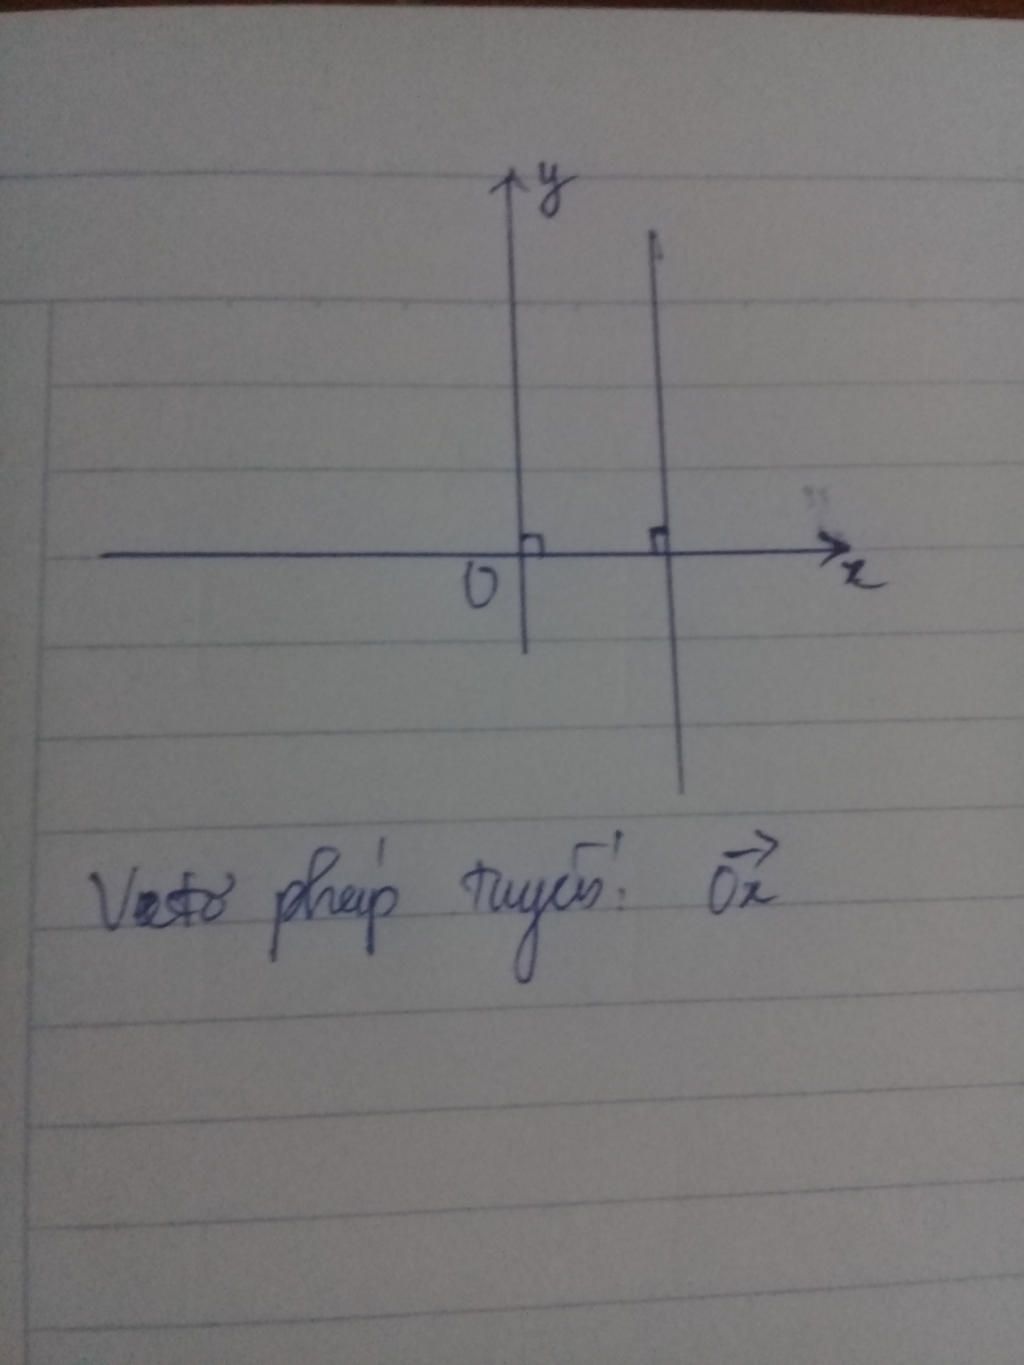 y
O
x
Vectơ pháp tuyến: Ox